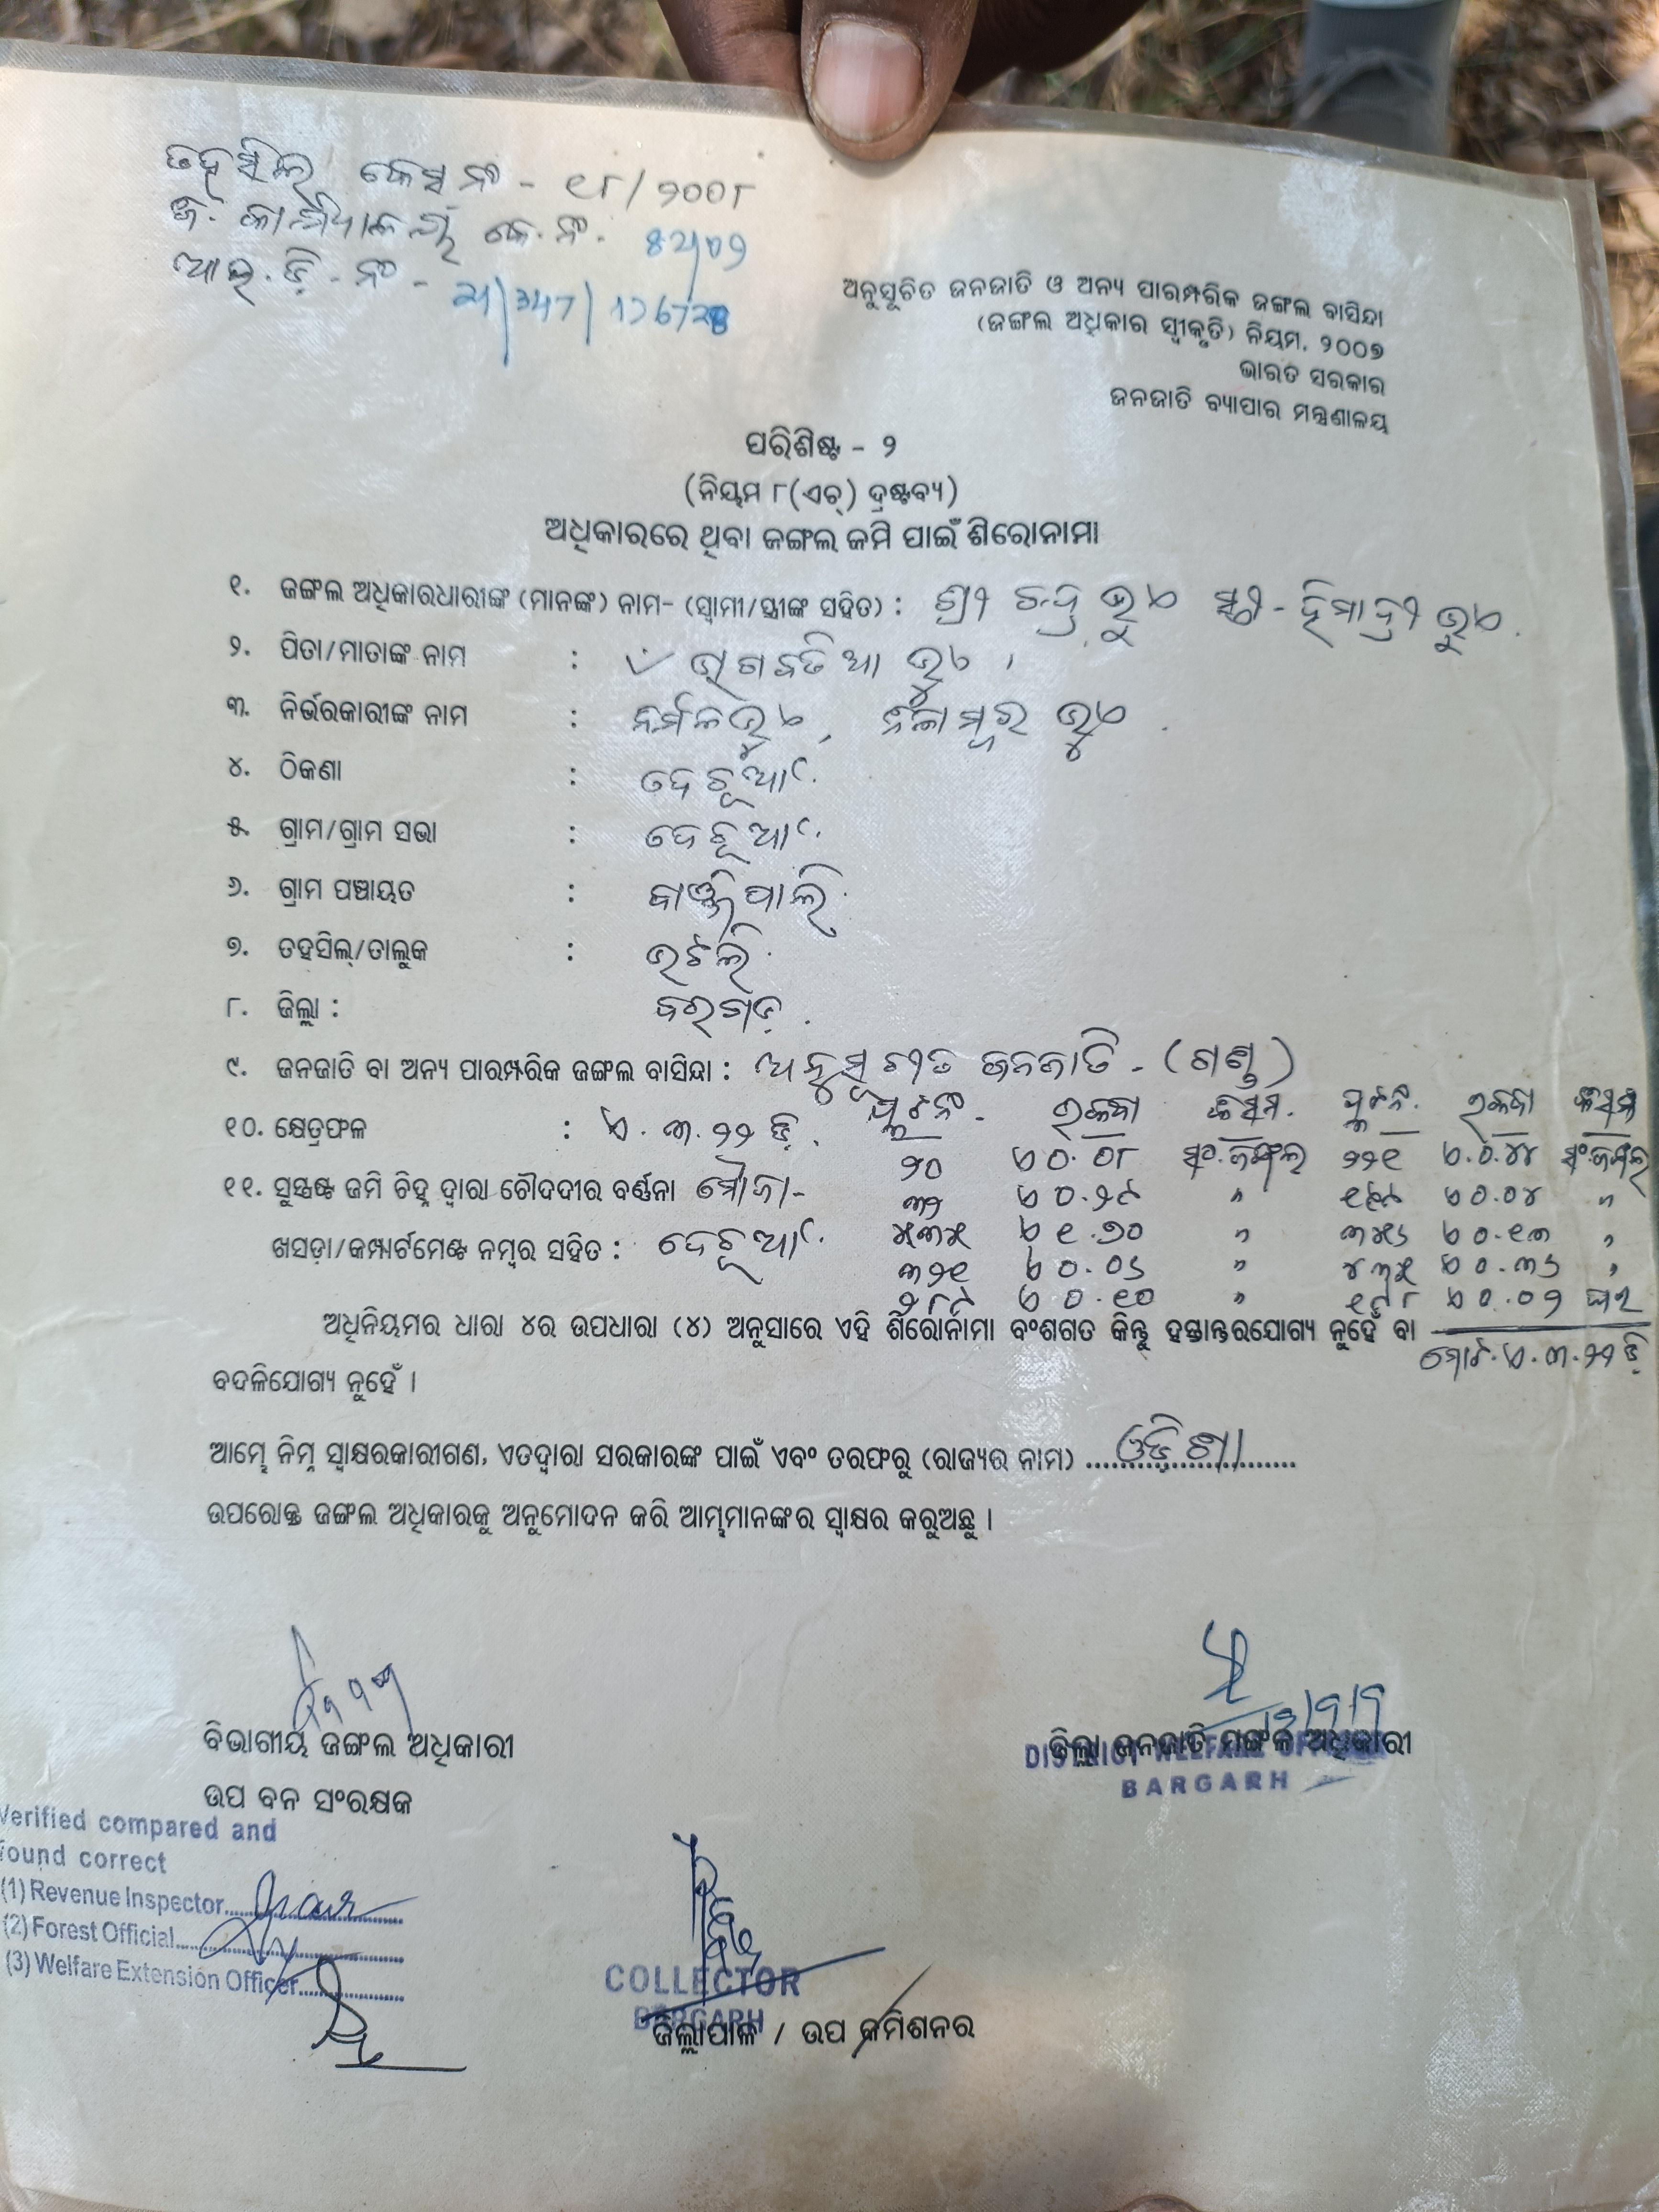 ତହସିଲ କେସ ନଂ - ୧୮/୨୦୦୮
ଜି. କାର୍ଯ୍ୟାଳୟ କେ. ନଂ. 52/09
ଆଇ.ଡ଼ି. - ନଂ - 21/347/
ଅନୁସୂଚିତ ଜନଜାତି ଓ ଅନ୍ୟ ପାରମ୍ପରିକ ଜଙ୍ଗଲ ବାସିନ୍ଦା
(ଜଙ୍ଗଲ ଅଧିକାର ସ୍ୱୀକୃତି) ନିୟମ, ୨୦୦୭
ଭାରତ ସରକାର
ଜନଜାତି ବ୍ୟାପାର ମନ୍ତ୍ରଣାଳୟ
ପରିଶିଷ୍ଟ - ୨
(ନିୟମ ୮(ଏଚ୍) ଦ୍ରଷ୍ଟବ୍ୟ)
ଅଧିକାରରେ ଥିବା ଜଙ୍ଗଲ ଜମି ପାଇଁ ଶିରୋନାମା
୧. ଜଙ୍ଗଲ ଅଧିକାରଧାରୀଙ୍କ (ମାନଙ୍କ) ନାମ- (ସ୍ୱାମୀ/ସ୍ତ୍ରୀଙ୍କ ସହିତ) : ଶ୍ରୀ ଚନ୍ଦ୍ର ଭୁଏ ସ୍ତ୍ରୀ - ହିମାଦ୍ରୀ ଭୁଏ.
୨. ପିତା/ମାତାଙ୍କ ନାମ : ଭାଗବତିଆ ଭୁଏ
୩. ନିର୍ଭରକାରୀଙ୍କ ନାମ : ନିର୍ମଳ ଭୁଏ, ନିଳାମ୍ବର ଭୁଏ.
୪. ଠିକଣା : ଦେଚୂଆଁ
୫. ଗ୍ରାମ/ଗ୍ରାମ ସଭା : ଦେଚୂଆଁ
୬. ଗ୍ରାମ ପଞ୍ଚାୟତ : ବାଞ୍ଜିପାଲି
୭. ତହସିଲ୍/ତାଲୁକ : ଭଟଲି
୮. ଜିଲ୍ଲା : ବରଗଡ଼.
୯. ଜନଜାତି ବା ଅନ୍ୟ ପାରମ୍ପରିକ ଜଙ୍ଗଲ ବାସିନ୍ଦା : ଅନୁସୂଚୀତ ଜନଜାତି - (ଗଣ୍ଡ)
୧୦. କ୍ଷେତ୍ରଫଳ : ଏ. ୩. ୨୨ ଡି. ପ୍ଲଟନଂ. ରକବା କିସମ. ପ୍ଲଟନଂ. ରକବା କିସମ
୨୦ ଏ ୦.୦୮ ସଂ.ଜଙ୍ଗଲ ୨୨୧ ଏ.୦.୪୪ ସଂ.ଜଙ୍ଗଲ
୧୧. ସୁସ୍ପଷ୍ଟ ଜମି ଚିହ୍ନ ଦ୍ୱାରା ଚୌଦଦୀର ବର୍ଣ୍ଣନା ମୌଜା- ୩୨ ଏ ୦.୨୯ " ଏ ୦.୦୪ "
ଖସଡ଼ା/କମ୍ପାର୍ଟମେଣ୍ଟ ନମ୍ବର ସହିତ : ଦେଚୂଆଁ ୪୩୪ ଏ ୧.୭୦ " ୩୪୬ ଏ ୦.୧୩ "
୩୨୧ ଏ ୦.୦୬ " ଏ ୦.୩୬ "
୨୮୯ ଏ ୦.୧୦ " ଏ ୦.୦୨ ଘର
ଅଧିନିୟମର ଧାରା ୪ର ଉପଧାରା (୪) ଅନୁସାରେ ଏହି ଶିରୋନାମା ବଂଶଗତ କିନ୍ତୁ ହସ୍ତାନ୍ତରଯୋଗ୍ୟ ନୁହେଁ ବା
ମୋଟ. ଏ. ୩. ୨୨ ଡି
ବଦଳିଯୋଗ୍ୟ ନୁହେଁ ।
ଆମ୍ଭେ ନିମ୍ନ ସ୍ୱାକ୍ଷରକାରୀଗଣ, ଏତଦ୍ୱାରା ସରକାରଙ୍କ ପାଇଁ ଏବଂ ତରଫରୁ (ରାଜ୍ୟର ନାମ) ....ଓଡ଼ିଶା....
ଉପରୋକ୍ତ ଜଙ୍ଗଲ ଅଧିକାରକୁ ଅନୁମୋଦନ କରି ଆମ୍ଭମାନଙ୍କର ସ୍ୱାକ୍ଷର କରୁଅଛୁ ।
ବିଭାଗୀୟ ଜଙ୍ଗଲ ଅଧିକାରୀ
ଉପ ବନ ସଂରକ୍ଷକ
ଜିଲ୍ଲା ଜନଜାତି ମଙ୍ଗଳ ଅଧିକାରୀ
DISTRICT WELFARE OFFICER
BARGARH
Verified compared and
found correct
(1) Revenue Inspector
(2) Forest Official
(3) Welfare Extension Officer
COLLECTOR
BARGARH
ଜିଲ୍ଲାପାଳ / ଉପ କମିଶନର